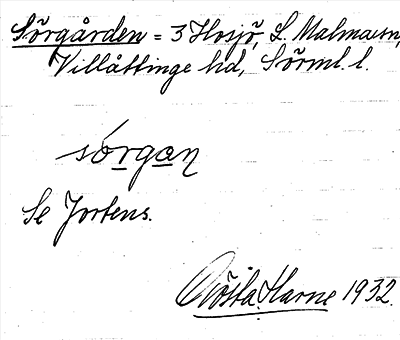 Sörgården = 3 Hosjö, L. Malmasn,
Villåttinge hd, Sörml. l.
sórgan
Se Jortens.
Gösta Harne 1932.